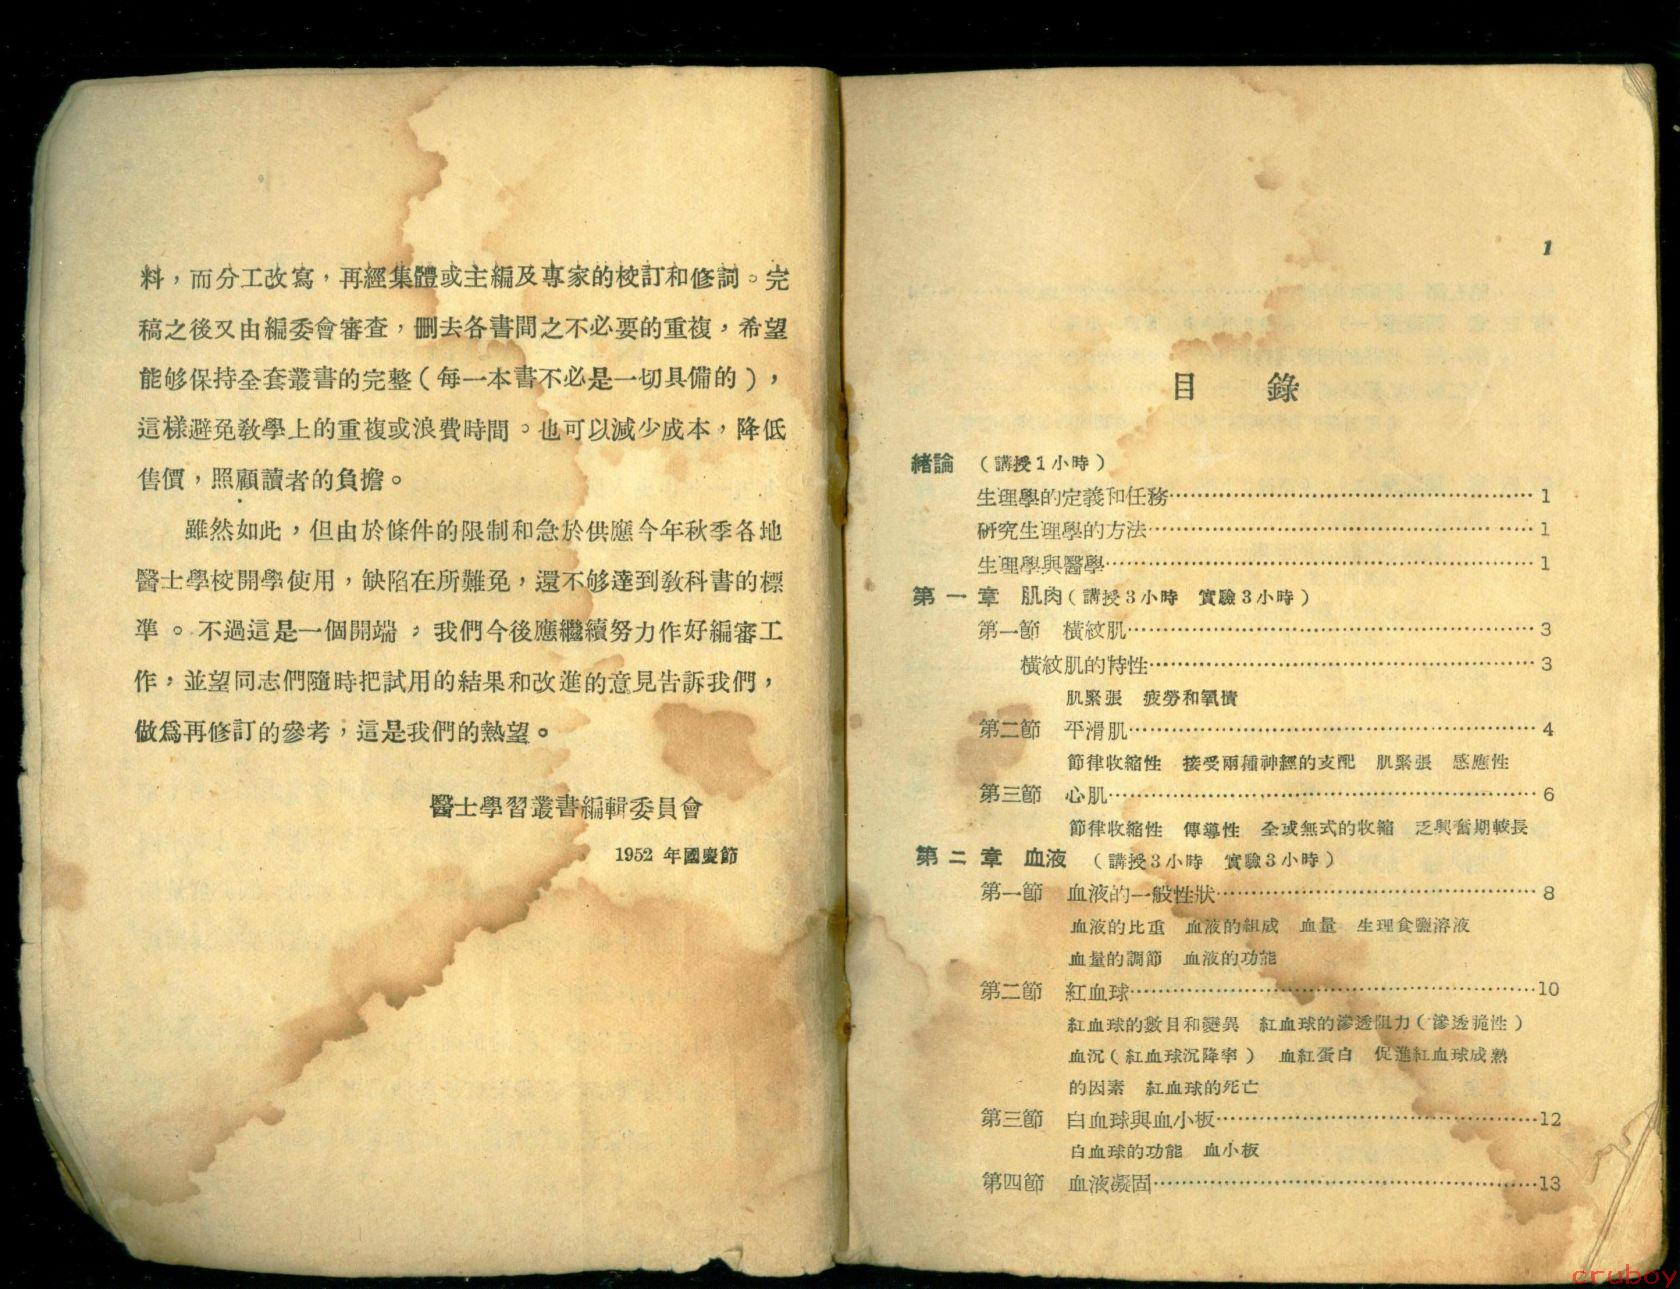 料，而分工改寫，再經集體或主編及專家的校訂和修詞。完
稿之後又由編委會審查，刪去各書間之不必要的重複，希望
能够保持全套叢書的完整（每一本書不必是一切具備的），
這樣避免敎學上的重複或浪費時間。也可以減少成本，降低
售價，照顧讀者的負擔。
雖然如此，但由於條件的限制和急於供應今年秋季各地
醫士學校開學使用，缺陷在所難免，還不够達到敎科書的標
準。不過這是一個開端，我們今後應繼續努力作好編審工
作，並望同志們隨時把試用的結果和改進的意見告訴我們，
做爲再修訂的參考，這是我們的熱望。
醫士學習叢書編輯委員會
1952 年國慶節
1
目 錄
緒論 （講授1小時）
生理學的定義和任務……1
研究生理學的方法……1
生理學與醫學……1
第一章 肌肉（講授3小時 實驗3小時）
第一節 橫紋肌……3
橫紋肌的特性……3
肌緊張 疲勞和氧債
第二節 平滑肌……4
節律收縮性 接受兩種神經的支配 肌緊張 感應性
第三節 心肌……6
節律收縮性 傳導性 全或無式的收縮 乏興奮期較長
第二章 血液 （講授3小時 實驗3小時）
第一節 血液的一般性狀……8
血液的比重 血液的組成 血量 生理食鹽溶液
血量的調節 血液的功能
第二節 紅血球……10
紅血球的數目和變異 紅血球的滲透阻力（滲透脆性）
血沉（紅血球沉降率） 血紅蛋白 促進紅血球成熟
的因素 紅血球的死亡
第三節 白血球與血小板……12
白血球的功能 血小板
第四節 血液凝固……13
cruboy